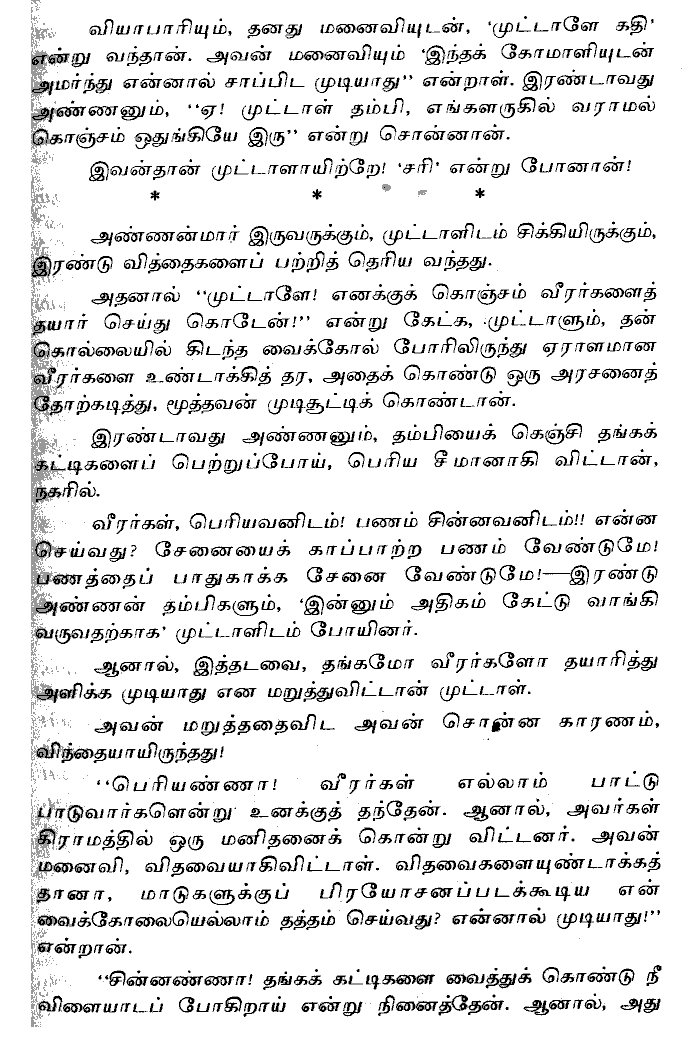 வியாபாரியும், தனது மனைவியுடன், ‘முட்டாளே கதி’
என்று வந்தான். அவன் மனைவியும் ‘இந்தக் கோமாளியுடன்
அமர்ந்து என்னால் சாப்பிட முடியாது’’ என்றாள். இரண்டாவது
அண்ணனும், ‘‘ஏ! முட்டாள் தம்பி, எங்களருகில் வராமல்
கொஞ்சம் ஒதுங்கியே இரு’’ என்று சொன்னான்.
இவன்தான் முட்டாளாயிற்றே! ‘சரி’ என்று போனான்!
* * *
அண்ணன்மார் இருவருக்கும், முட்டாளிடம் சிக்கியிருக்கும்,
இரண்டு வித்தைகளைப் பற்றித் தெரிய வந்தது.
அதனால் ‘‘முட்டாளே! எனக்குக் கொஞ்சம் வீரர்களைத்
தயார் செய்து கொடேன்!’’ என்று கேட்க, முட்டாளும், தன்
கொல்லையில் கிடந்த வைக்கோல் போரிலிருந்து ஏராளமான
வீரர்களை உண்டாக்கித் தர, அதைக் கொண்டு ஒரு அரசனைத்
தோற்கடித்து, மூத்தவன் முடிசூட்டிக் கொண்டான்.
இரண்டாவது அண்ணனும், தம்பியைக் கெஞ்சி தங்கக்
கட்டிகளைப் பெற்றுப்போய், பெரிய சீமானாகி விட்டான்,
நகரில்.
வீரர்கள், பெரியவனிடம்! பணம் சின்னவனிடம்!! என்ன
செய்வது? சேனையைக் காப்பாற்ற பணம் வேண்டுமே!
பணத்தைப் பாதுகாக்க சேனை வேண்டுமே!—இரண்டு
அண்ணன் தம்பிகளும், ‘இன்னும் அதிகம் கேட்டு வாங்கி
வருவதற்காக’ முட்டாளிடம் போயினர்.
ஆனால், இத்தடவை, தங்கமோ வீரர்களோ தயாரித்து
அளிக்க முடியாது என மறுத்துவிட்டான் முட்டாள்.
அவன் மறுத்ததைவிட அவன் சொன்ன காரணம்,
விந்தையாயிருந்தது!
‘‘பெரியண்ணா! வீரர்கள் எல்லாம் பாட்டு
பாடுவார்களென்று உனக்குத் தந்தேன். ஆனால், அவர்கள்
கிராமத்தில் ஒரு மனிதனைக் கொன்று விட்டனர். அவன்
மனைவி, விதவையாகிவிட்டாள். விதவைகளையுண்டாக்கத்
தானா, மாடுகளுக்குப் பிரயோசனப்படக்கூடிய என்
வைக்கோலையெல்லாம் தத்தம் செய்வது? என்னால் முடியாது!’’
என்றான்.
‘‘சின்னண்ணா! தங்கக் கட்டிகளை வைத்துக் கொண்டு நீ
விளையாடப் போகிறாய் என்று நினைத்தேன். ஆனால், அது